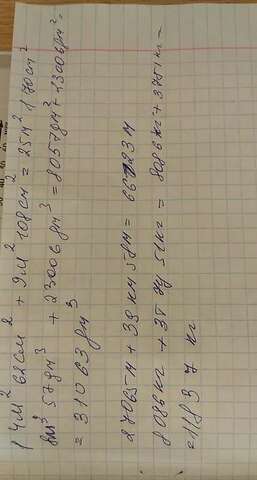 14м² 62см² + 9м² 108см² = 25м² 170см²
8м³ 57дм³ + 23006дм³ = 8057дм³ + 23006дм³ =
= 31063дм³
27065м + 39км 5дм = 66
8086кг + 37ц 51кг = 8086кг + 3751кг =
= 11837 кг